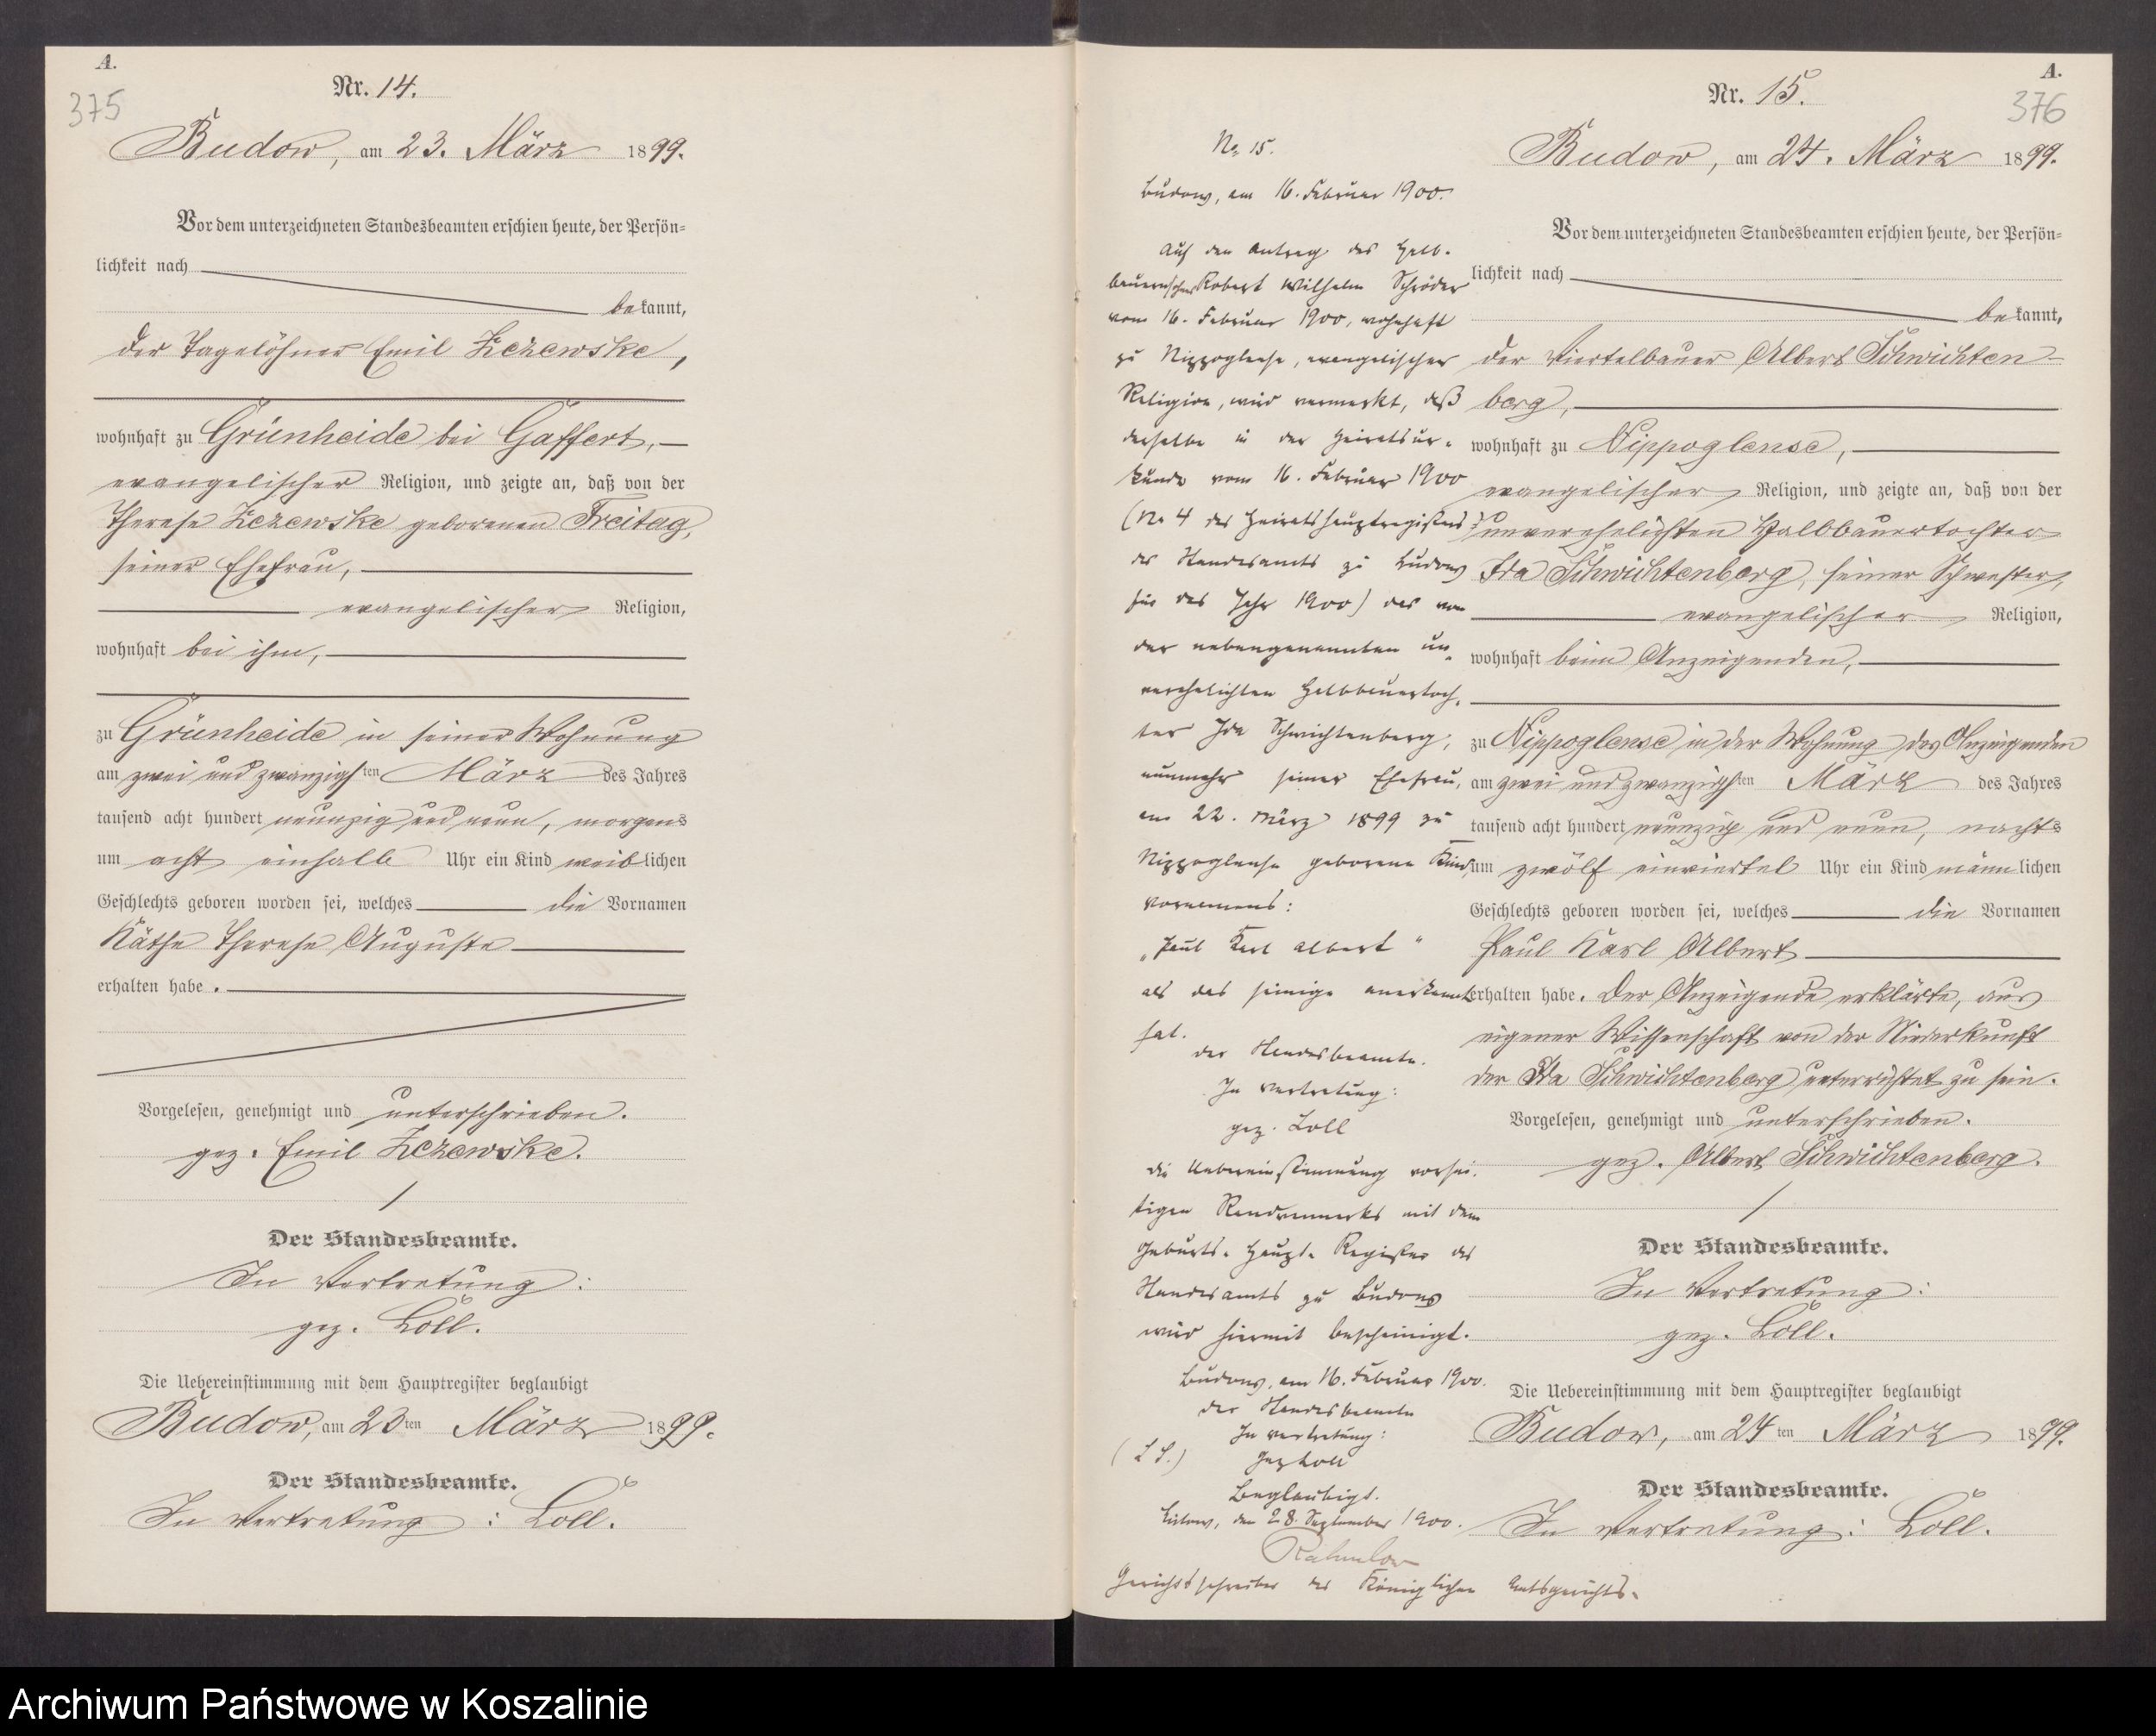 A.
375
Nr. 14.
Budow, am 23. März 1899.
Vor dem unterzeichneten Standesbeamten erschien heute, der Persön=
lichkeit nach
bekannt,
der Tagelöhner Emil Zezewske,
wohnhaft zu Grünheide bei Gaffert,
evangelischer Religion, und zeigte an, daß von der
Therese Zezewske geborenen Freitag,
seiner Ehefrau,
evangelischer Religion,
wohnhaft bei ihm,
zu Grünheide in seiner Wohnung
am zwei und zwanzigsten März des Jahres
tausend acht hundert neunzig und neun, morgens
um acht einhalb Uhr ein Kind weiblichen
Geschlechts geboren worden sei, welches die Vornamen
Käthe Therese Auguste
erhalten habe.
Vorgelesen, genehmigt und unterschrieben.
gez. Emil Zezewske.
Der Standesbeamte.
In Vertretung:
gez. Loll.
Die Uebereinstimmung mit dem Hauptregister beglaubigt
Budow, am 23ten März 1899.
Der Standesbeamte.
In Vertretung: Loll.
No 15.
Budow, am 16. Februar 1900.
Auf den Antrag des Halb-
bauernsohns Robert Wilhelm Schröder
vom 16. Februar 1900, wohnhaft
zu Nippoglense, evangelischer
Religion, wird vermerkt, daß
derselbe in der Heiratsur-
kunde vom 16. Februar 1900
(No 4 des Heiratshauptregisters
des Standesamts zu Budow
für das Jahr 1900) das von
der nebengenannten un-
verehelichten Halbbauertoch-
ter Ida Schwichtenberg,
nunmehr seiner Ehefrau,
am 22. März 1899 zu
Nippoglense geborene Kind,
Vornamens:
„Paul Karl Albert"
als das seinige anerkannt
hat.
Der Standesbeamte.
In Vertretung:
gez. Loll
Die Uebereinstimmung vorsei-
tigen Randvermerks mit dem
Geburts-Haupt-Register des
Standesamts zu Budow
wird hiermit bescheinigt.
Budow, am 16. Februar 1900.
Der Standesbeamte
In Vertretung:
(L S.) gez Loll
Beglaubigt.
den 28. September 1900.
Gerichtsschreiber des Königlichen Amtsgerichts.
A.
376
Nr. 15.
Budow, am 24. März 1899.
Vor dem unterzeichneten Standesbeamten erschien heute, der Persön=
lichkeit nach
bekannt,
der Viertelbauer Albert Schwichten-
berg,
wohnhaft zu Nippoglense,
evangelischer Religion, und zeigte an, daß von der
unverehelichten Halbbauertochter
Ida Schwichtenberg, seiner Schwester,
evangelischer Religion,
wohnhaft beim Anzeigenden,
zu Nippoglense in der Wohnung des Anzeigenden
am zwei und zwanzigsten März des Jahres
tausend acht hundert neunzig und neun, nachts
um zwölf einviertel Uhr ein Kind männlichen
Geschlechts geboren worden sei, welches die Vornamen
Paul Karl Albert
erhalten habe. Der Anzeigende erklärte, aus
eigener Wissenschaft von der Niederkunft
der Ida Schwichtenberg unterrichtet zu sein.
Vorgelesen, genehmigt und unterschrieben.
gez. Albert Schwichtenberg.
Der Standesbeamte.
In Vertretung:
gez. Loll.
Die Uebereinstimmung mit dem Hauptregister beglaubigt
Budow, am 24ten März 1899.
Der Standesbeamte.
In Vertretung: Loll.
Archiwum Państwowe w Koszalinie